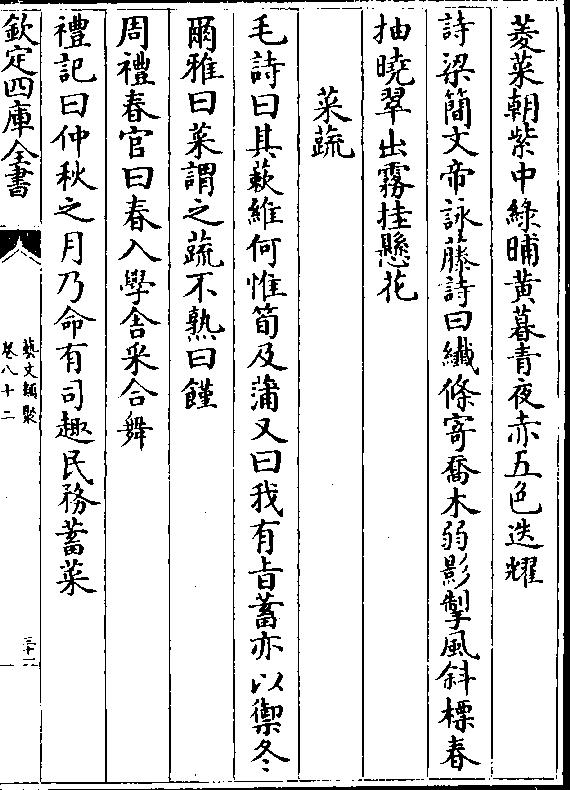 菱葉朝紫中綠晡黄暮青夜赤五色迭耀
詩梁簡文帝詠藤詩曰纎條寄喬木弱影掣風斜標春
抽曉翠出霧挂懸花
菜蔬
毛詩曰其蔌維何惟筍及蒲又曰我有旨蓄亦以禦冬
爾雅曰菜謂之蔬不熟曰饉
周禮春官曰春入學舍采合舞
禮記曰仲秋之月乃命有司趣民務蓄菜
欽定四庫全書
藝文類聚
卷八十二